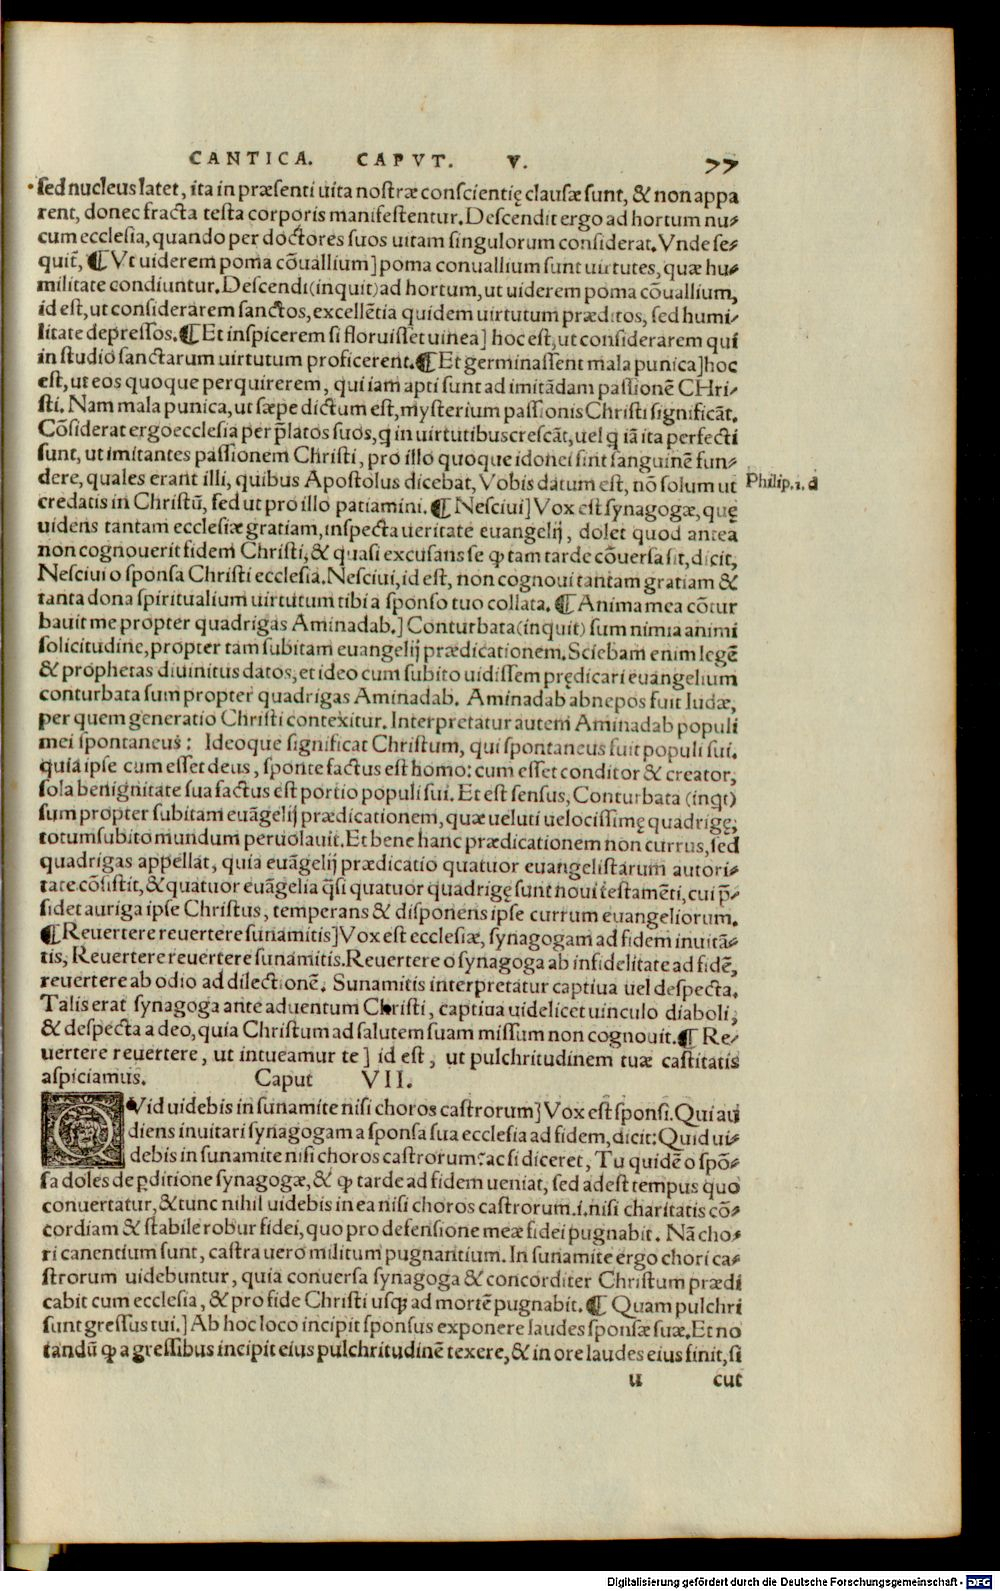 CANTICA. CAPVT. V. 77
sed nucleus latet, ita in præsenti uita nostræ conscientię clausæ sunt, & non appa
rent, donec fracta testa corporis manifestentur. Descendit ergo ad hortum nu-
cum ecclesia, quando per doctores suos uitam singulorum considerat. Vnde se-
quit̃, ¶ Vt uiderem poma cõuallium] poma conuallium sunt uirtutes, quæ hu-
militate condiuntur. Descendi (inquit) ad hortum, ut uiderem poma cõuallium,
id est, ut considerarem sanctos, excellẽtia quidem uirtutum præditos, sed humi-
litate depressos. ¶ Et inspicerem si floruisset uinea] hoc est, ut considerarem qui
in studio sanctarum uirtutum proficerent. ¶ Et germinassent mala punica] hoc
est, ut eos quoque perquirerem, qui iam apti sunt ad imitãdam passionẽ CHri-
sti. Nam mala punica, ut sæpe dictum est, mysterium passionis Christi significãt.
Cõsiderat ergo ecclesia per p̃latos suos, q in uirtutibus crescãt, uel q iã ita perfecti
sunt, ut imitantes passionem Christi, pro illo quoque idonei sint sanguinẽ fun-
dere, quales erant illi, quibus Apostolus dicebat, Vobis datum est, nõ solum ut
Philip. i. d
credatis in Christũ, sed ut pro illo patiamini. ¶ Nesciui] Vox est synagogæ, quę
uidens tantam ecclesiæ gratiam, inspecta ueritate euangelij, dolet quod antea
non cognouerit fidem Christi, & quasi excusans se ꝙ tam tarde cõuersa sit, dicit,
Nesciui o sponsa Christi ecclesia. Nesciui, id est, non cognoui tantam gratiam &
tanta dona spiritualium uirtutum tibi a sponso tuo collata. ¶ Anima mea cõtur
bauit me propter quadrigas Aminadab.] Conturbata (inquit) sum nimia animi
solicitudine, propter tam subitam euangelij prædicationem. Sciebam enim legẽ
& prophetas diuinitus datos, et ideo cum subito uidissem prędicari euangelium
conturbata sum propter quadrigas Aminadab. Aminadab abnepos fuit Iudæ,
per quem generatio Christi contexitur. Interpretatur autem Aminadab populi
mei spontaneus: Ideoque significat Christum, qui spontaneus fuit populi sui.
quia ipse cum esset deus, sponte factus est homo: cum esset conditor & creator,
sola benignitate sua factus est portio populi sui. Et est sensus, Conturbata (inqt)
sum propter subitam euãgelij prædicationem, quæ ueluti uelocissimę quadrigę,
totum subito mundum peruolauit. Et bene hanc prædicationem non currus, sed
quadrigas appellat, quia euãgelij prædicatio quatuor euangelistarum autori-
tate cõsistit, & quatuor euãgelia q̃si quatuor quadrigę sunt noui testamẽti, cui p̃-
sidet auriga ipse Christus, temperans & disponens ipse currum euangeliorum.
¶ Reuertere reuertere sunamitis] Vox est ecclesiæ, synagogam ad fidem inuitã-
tis, Reuertere reuertere sunamitis. Reuertere o synagoga ab infidelitate ad fidẽ,
reuertere ab odio ad dilectionẽ. Sunamitis interpretatur captiua uel despecta.
Talis erat synagoga ante aduentum Christi, captiua uidelicet uinculo diaboli,
& despecta a deo, quia Christum ad salutem suam missum non cognouit. ¶ Re-
uertere reuertere, ut intueamur te] id est, ut pulchritudinem tuæ castitatis
aspiciamus. Caput VII.
QVid uidebis in sunamite nisi choros castrorum] Vox est sponsi. Qui au
diens inuitari synagogam a sponsa sua ecclesia ad fidem, dicit: Quid ui-
debis in sunamite nisi choros castrorum? ac si diceret, Tu quidẽ o spõ-
sa doles de ꝑditione synagogæ, & ꝙ tarde ad fidem ueniat, sed adest tempus quo
conuertatur, & tunc nihil uidebis in ea nisi choros castrorum. i. nisi charitatis cõ-
cordiam & stabile robur fidei, quo pro defensione meæ fidei pugnabit. Nã cho-
ri canentium sunt, castra uero militum pugnantium. In sunamite ergo chori ca-
strorum uidebuntur, quia conuersa synagoga & concorditer Christum prædi
cabit cum ecclesia, & pro fide Christi usq; ad mortẽ pugnabit. ¶ Quam pulchri
sunt gressus tui.] Ab hoc loco incipit sponsus exponere laudes sponsæ suæ. Et no
tandũ ꝙ a gressibus incipit eius pulchritudinẽ texere, & in ore laudes eius finit, si
u cut
Digitalisierung gefördert durch die Deutsche Forschungsgemeinschaft - DFG